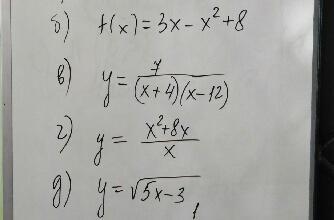 б) f(x) = 3x - x² + 8
в) y = 7/((x+4)(x-12))
г) y = (x²+8x)/x
д) y = √(5x-3)